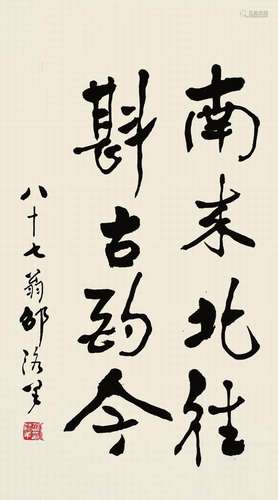 南来北往
斟古酌今
八十七翁邵洛羊